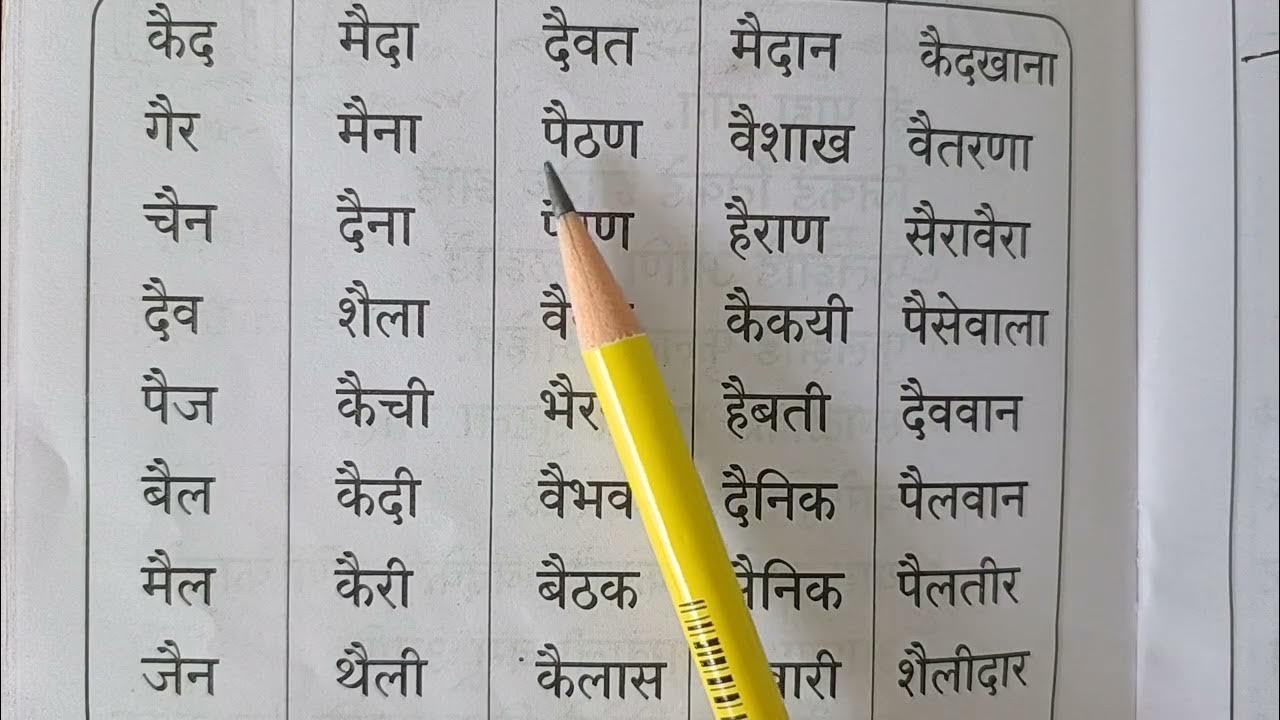 कैद मैदा दैवत मैदान कैदखाना
गैर मैना पैठण वैशाख वैतरणा
चैन दैना हैराण सैरावैरा
दैव शैला कैकयी पैसेवाला
पैज कैची हैबती दैववान
बैल कैदी वैभव दैनिक पैलवान
मैल कैरी बैठक सैनिक पैलतीर
जैन थैली कैलास शैलीदार